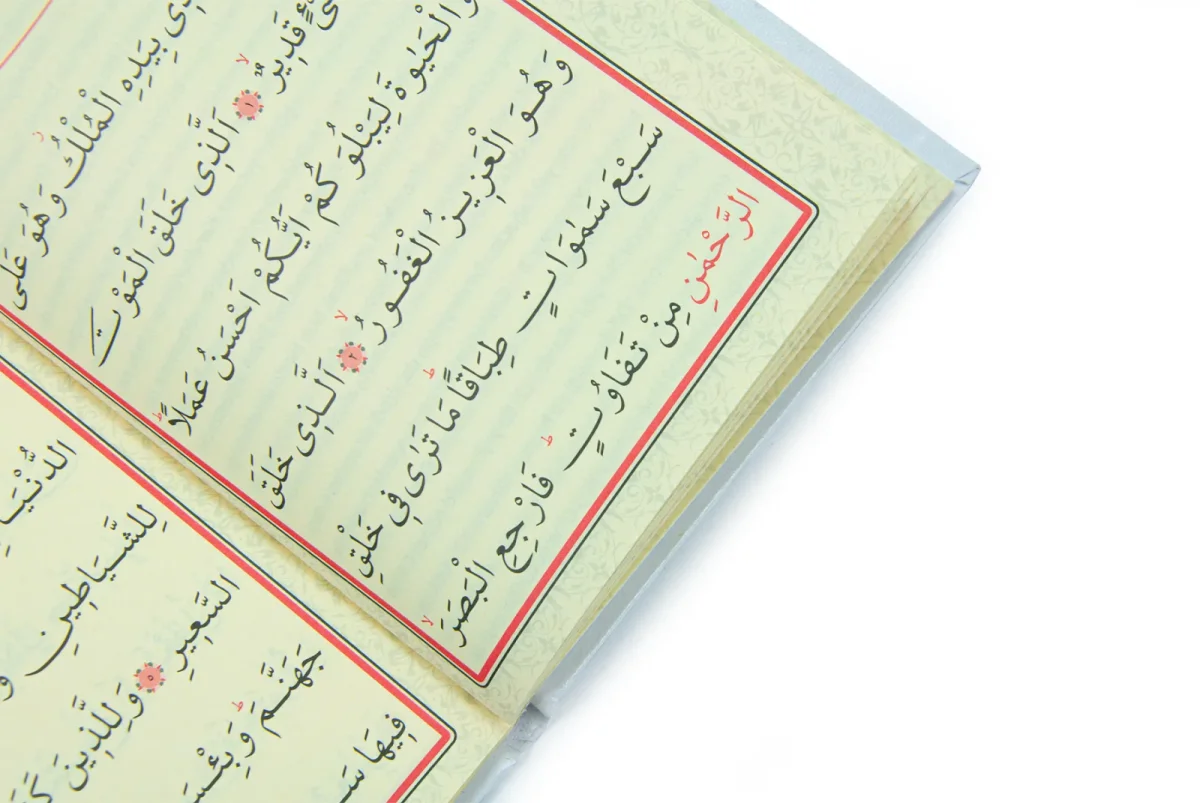 بِيَدِهِ الْمُلْكُ وَهُوَ عَلٰى
قَدِيرٌۙ ﴿١﴾ اَلَّذِى خَلَقَ الْمَوْتَ
وَالْحَيٰوةَ لِيَبْلُوَكُمْ اَيُّكُمْ اَحْسَنُ عَمَلًاۜ
وَهُوَ الْعَزِيزُ الْغَفُورُۙ ﴿٢﴾ اَلَّذِى خَلَقَ
سَبْعَ سَمٰوَاتٍ طِبَاقًاۜ مَا تَرٰى فِى خَلْقِ
الرَّحْمٰنِ مِنْ تَفَاوُتٍۜ فَارْجِعِ الْبَصَرَۙ
الدُّنْيَا
لِلشَّيَاطِينِ
السَّعِيرِ ﴿٥﴾ وَلِلَّذِينَ
جَهَنَّمَۜ وَبِئْسَ
فِيهَا